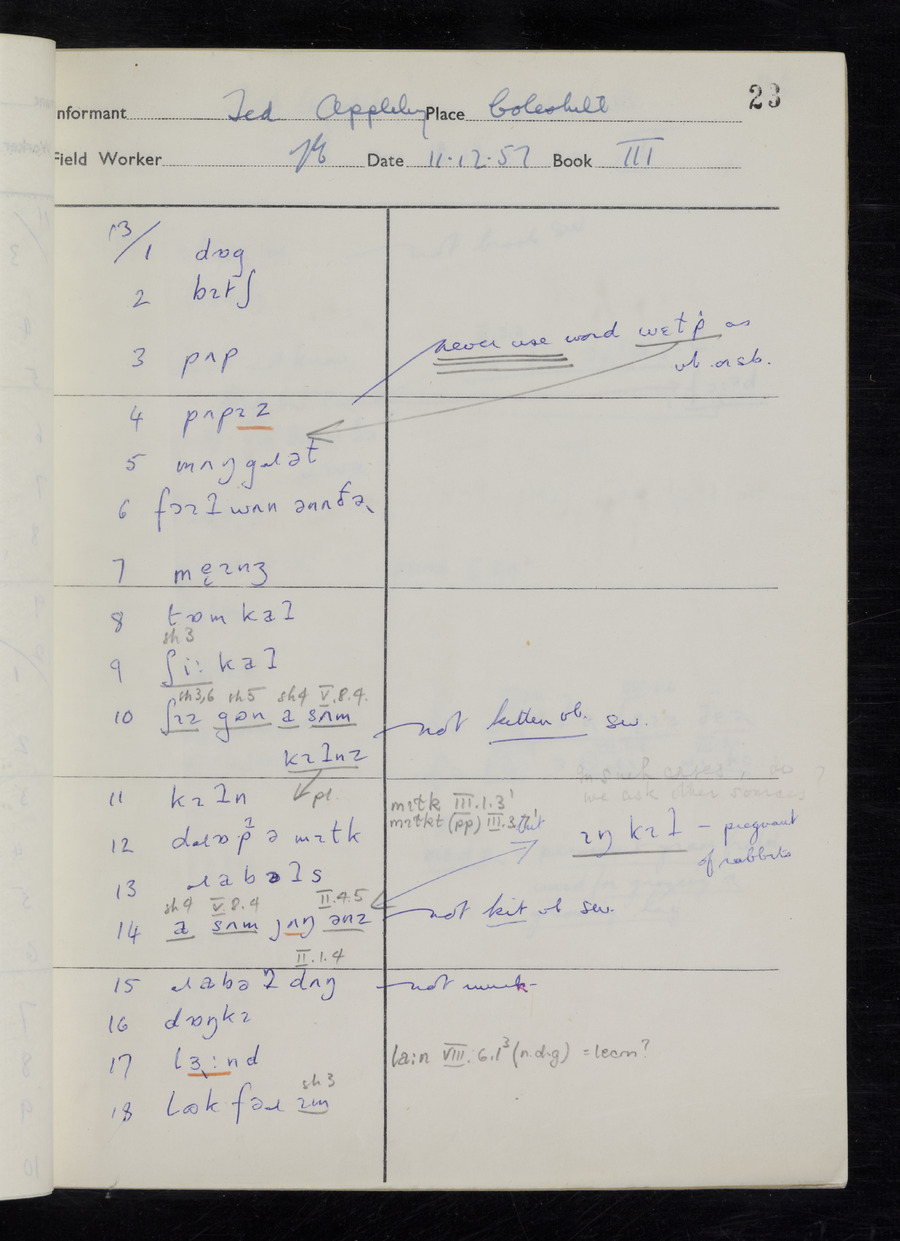 23
nformant Ted Appleby Place Coleshill
Field Worker Date 11·12·57 Book III
13/1 dɒg
2 bɪtʃ
3 pʌp
never use word wɛtp as
vb. or sb.
4 pʌpɪz
5 mʌŋgɹət
6
7
8 tɒm kaɫ
sh 3
9 ʃiː kaɫ
sh3,6 sh5 sh4 V.8.4.
10 ʃɪz gɒn a sʌm
kɪɫnz
not kitten vb. sw.
pl.
11 kɪɫn
In such cases, do
we ask other sources?
mɪtk III.1.3¹
mɪtkt (pp) III.3.
12 dɹɒp ə mɪtk
ɪŋ kɪɫ – pregnant
of rabbits
13 ɹabəɫs
sh4 V.8.4 II.4.5
14 a sʌm jʌŋ ənz
not kit vb sw.
II.1.4
15 ɹabəɫ dʌŋ
not muck
16 dɒŋkɪ
17 lɜːnd
laːn VIII.6.1³ (n.d.g) = learn?
sh3
18 lʊk fəɹ ɪm